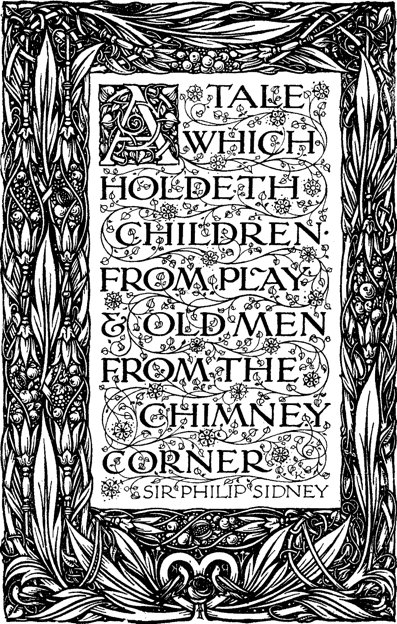 A TALE
WHICH
HOLDETH
CHILDREN·
FROM·PLAY·
& OLD·MEN
FROM·THE
CHIMNEY
CORNER
SIR·PHILIP·SIDNEY